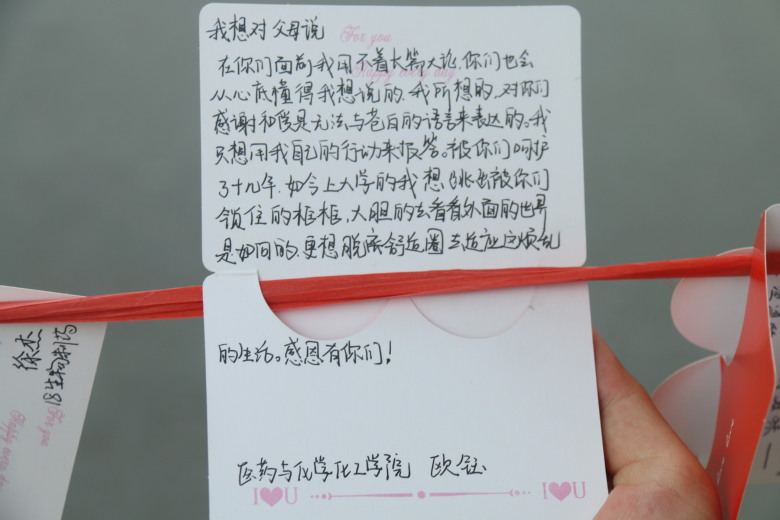 我想对父母说
For you
Happy every day
在你们面前我用不着长篇大论,你们也会
从心底懂得我想说的,我所想的,对你们
感谢和爱是无法与苍白的语言来表达的。我
只想用我自己的行动来报答。被你们呵护
了十几年,如今上大学的我想跳出被你们
锁住的框框,大胆的去看看外面的世界
是如何的,更想脱离舒适圈去适应这烦乱
的生活。感恩有你们!
医药与化学化工学院 欧钰
I♥U I♥U
徐杰
18生物制药
For you
Happy every